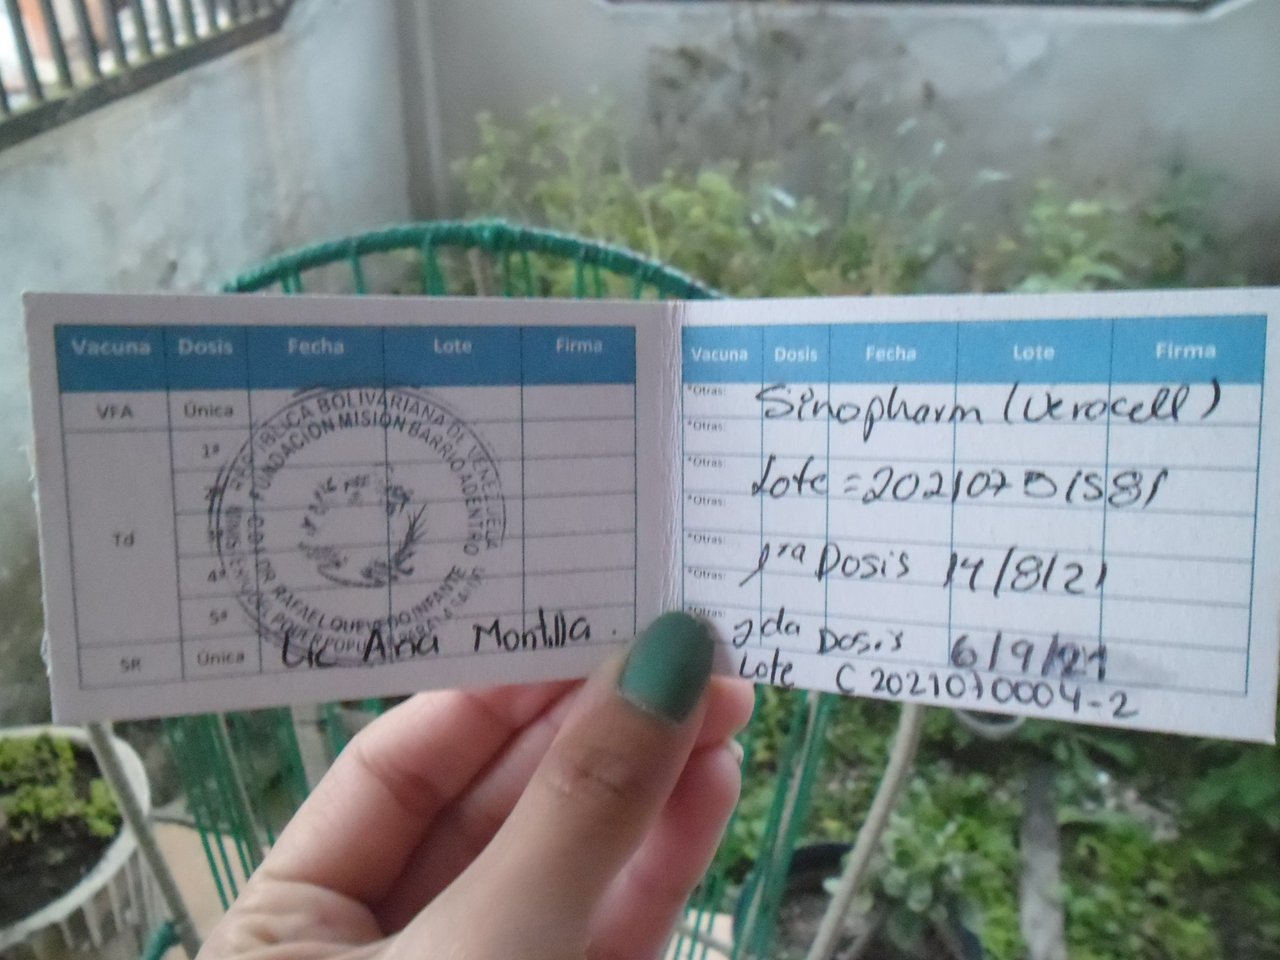 Vacuna Dosis Fecha Lote Firma
VFA Única
1ª
Td
4ª
5ª
SR Única
REPÚBLICA BOLIVARIANA DE VENEZUELA
FUNDACIÓN MISION BARRIO ADENTRO
DR RAFAEL QUEVEDO INFANTE
Lic Ana Montilla.
Vacuna Dosis Fecha Lote Firma
*Otras:
Sinopharm (Verocell)
*Otras:
*Otras:
Lote =
*Otras:
*Otras:
*Otras:
1ra Dosis 14/8/21
*Otras:
2da Dosis 6/9/21
Lote C 2021070004-2